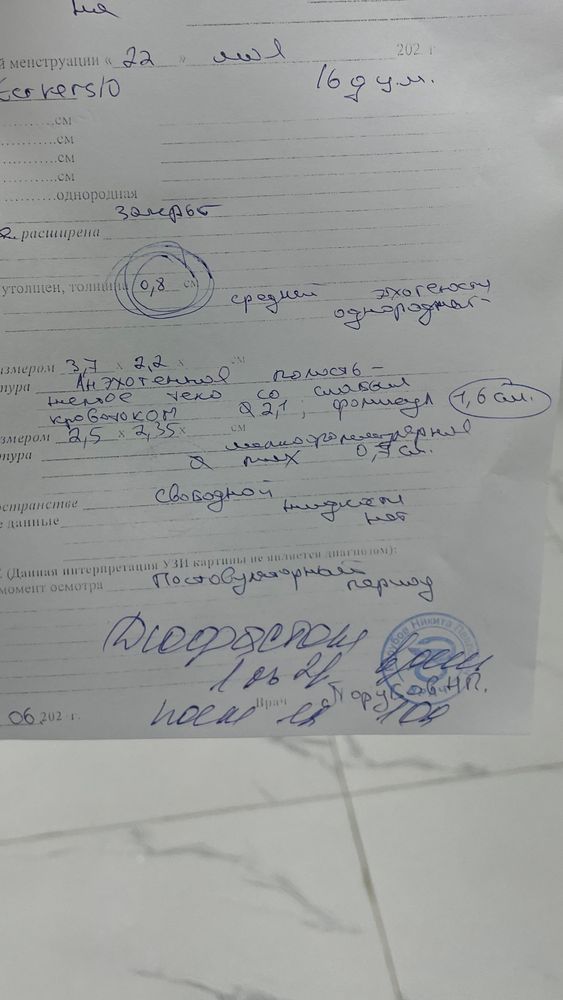 на
й менструации « 22 » мая 202 г
16 д у м.
...........см
...........см
...........см
...........см
...........однородная
закрыт
расширена
утолщен, толщина 0,8 см
средней эхогености
однородная
азмером 3,7 х 2,2 х см
тура Анэхогенное полость -
желтое тело со слабым
кровотоком d 2,1 ; фолликул 1,6 см.
змером 2,5 х 2,35 х см
тура мелкофолликулярные
d max 0,5 см.
остранстве свободной
жидкости
е данные нет
(Данная интерпретация УЗИ картины не является диагнозом):
момент осмотра Постовуляторный
период
Дюфастон
1 2р
Врач Порубов Н.П.
06 202 г. после